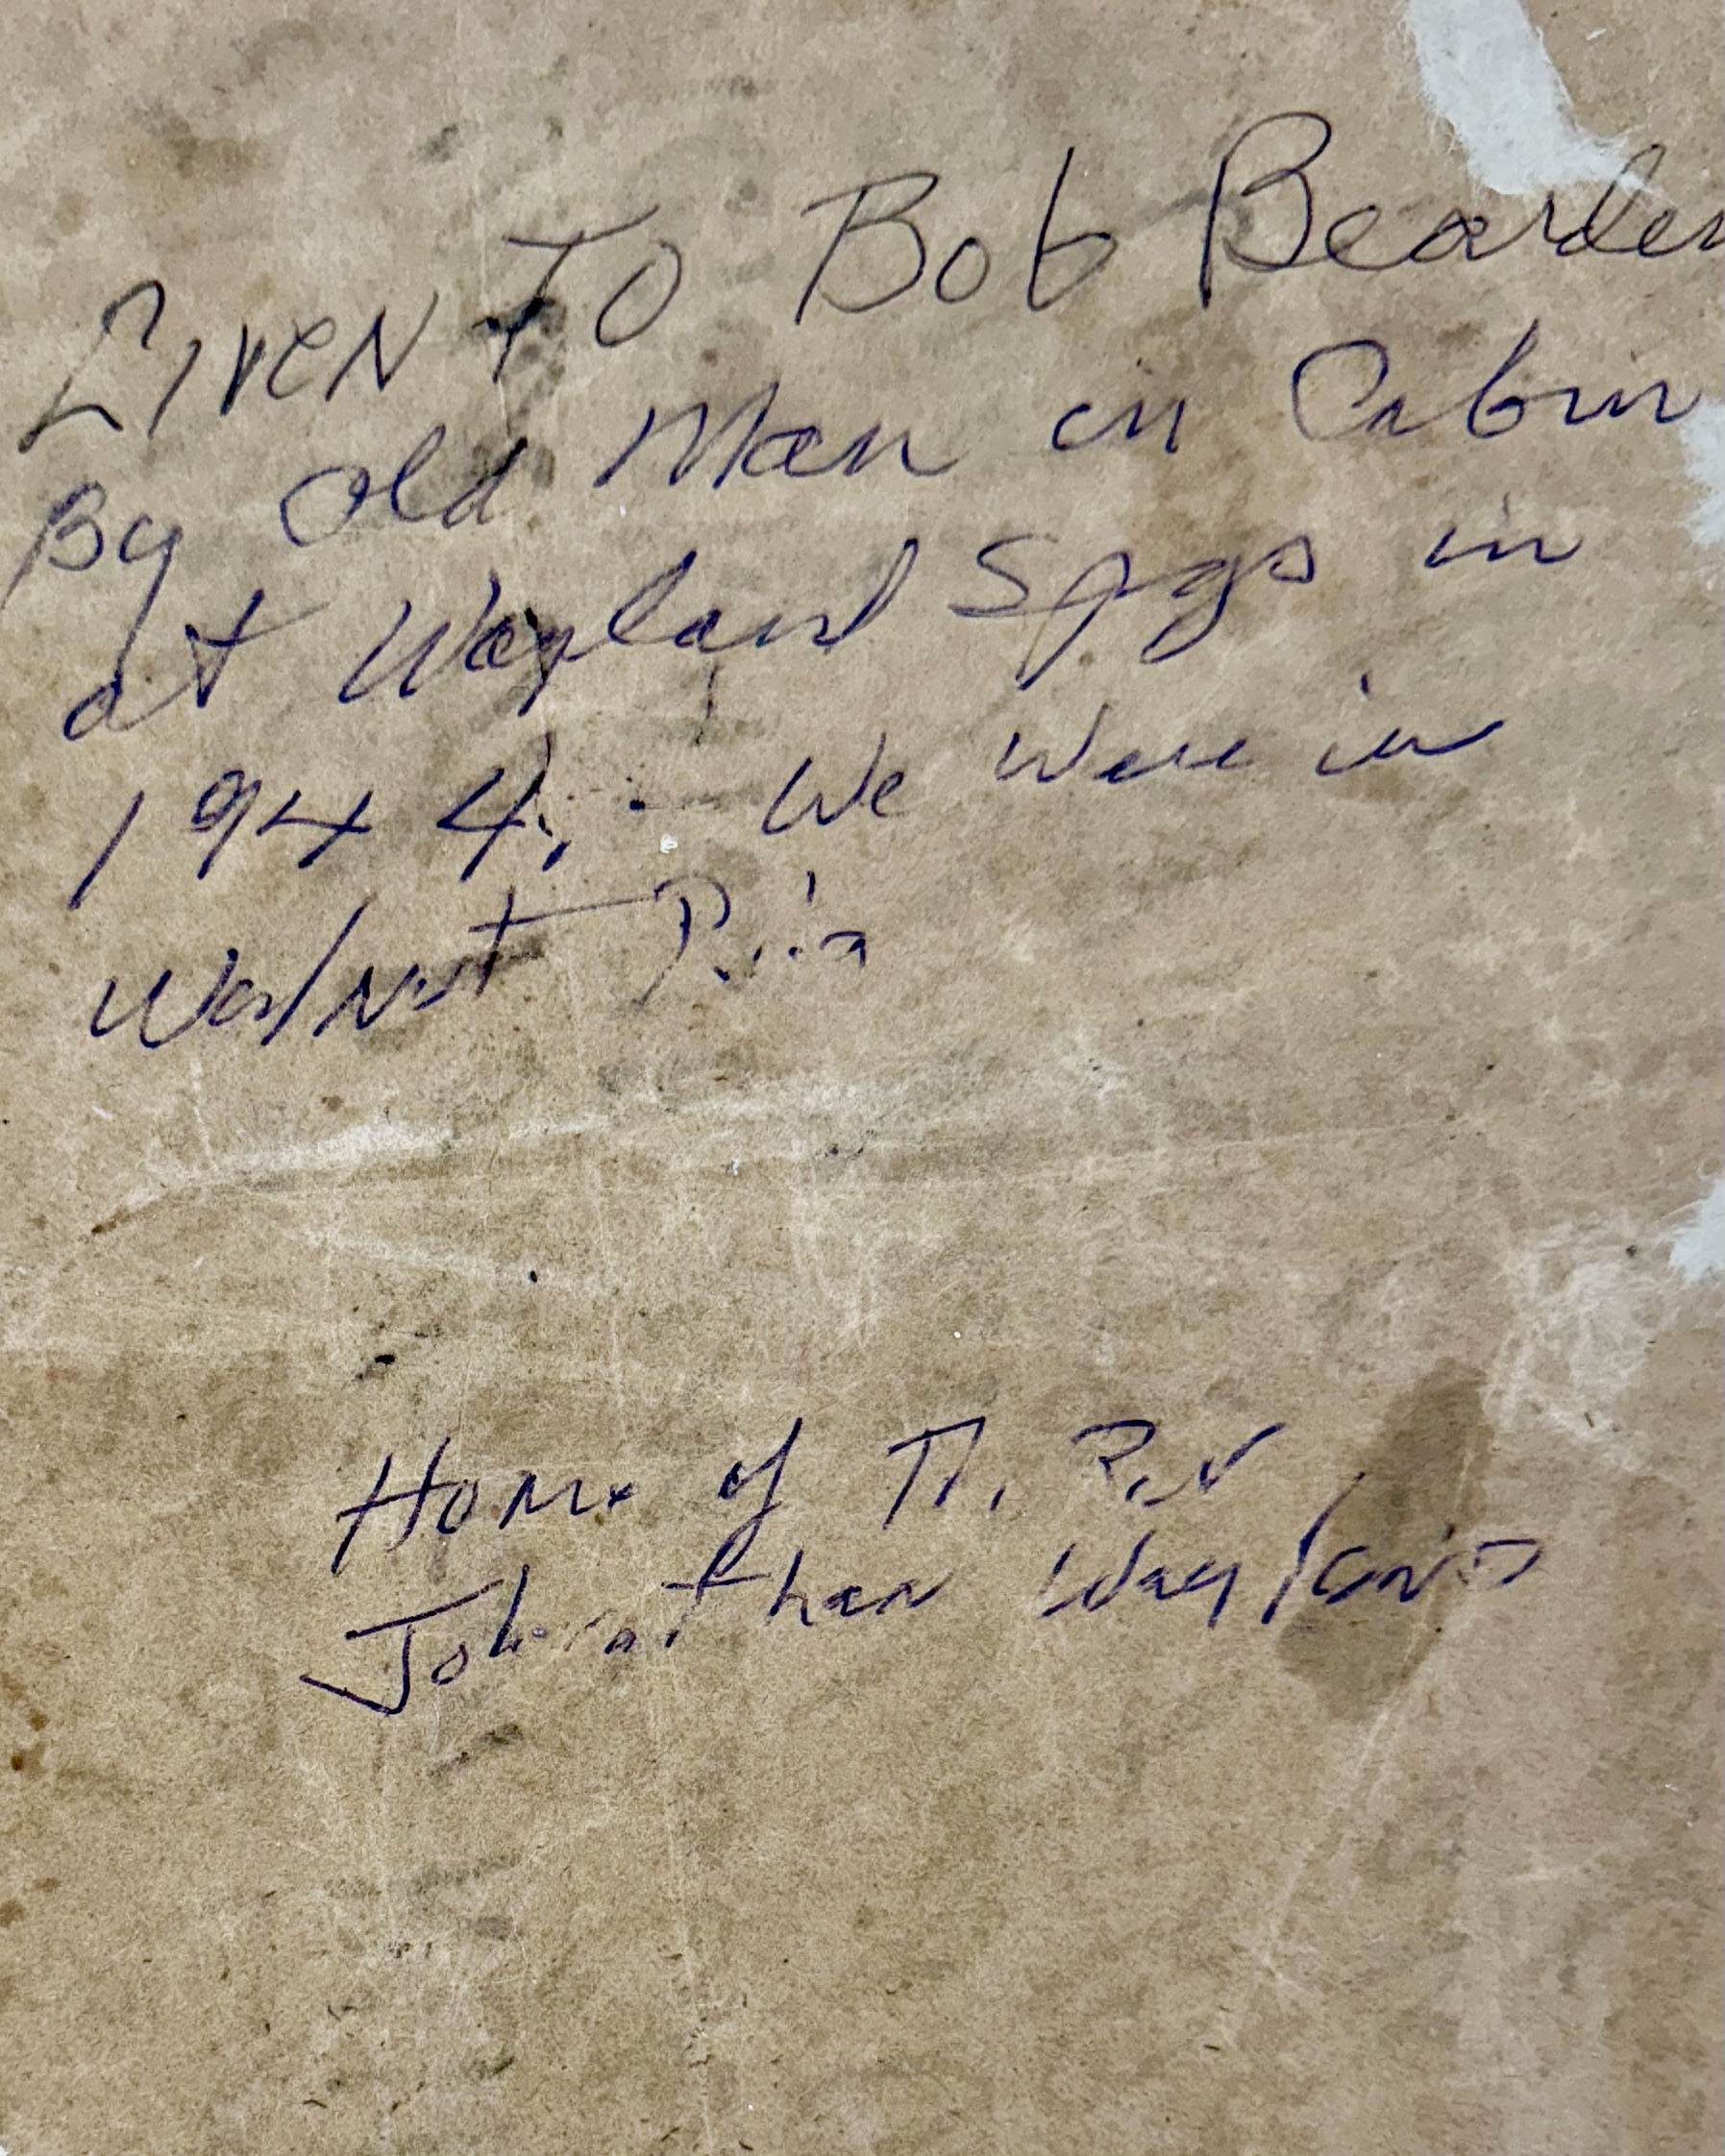 Given To Bob Bearden
By old Man in Cabin
at Wayland Spgs in
1944. - We were in
Walnut
Home of Th. Rev
Johnathan Waylands